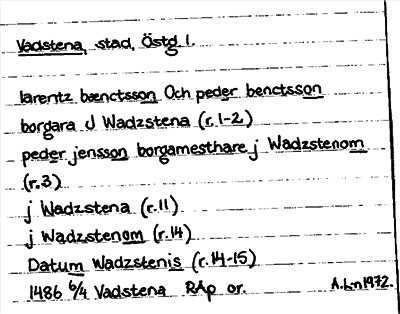 Vadstena, stad, Östg l.
larentz bænctsson Och peder benctsson
borgara J Wadzstena (r. 1-2)
peder jensson borgamesthare j Wadzstenom
(r. 3)
j Wadzstena (r. 11)
j Wadzstenom (r. 14)
Datum Wadzstenis (r. 14-15)
1486 6/4 Vadstena RAp or. A.L-n 1972.